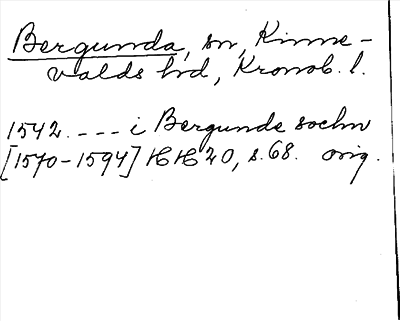 Bergunda, sn, Kinne-
valds hd, Kronob. l.
1542. --- i Bergunde sochn
[1570-1594] HH 20, s. 68. orig.